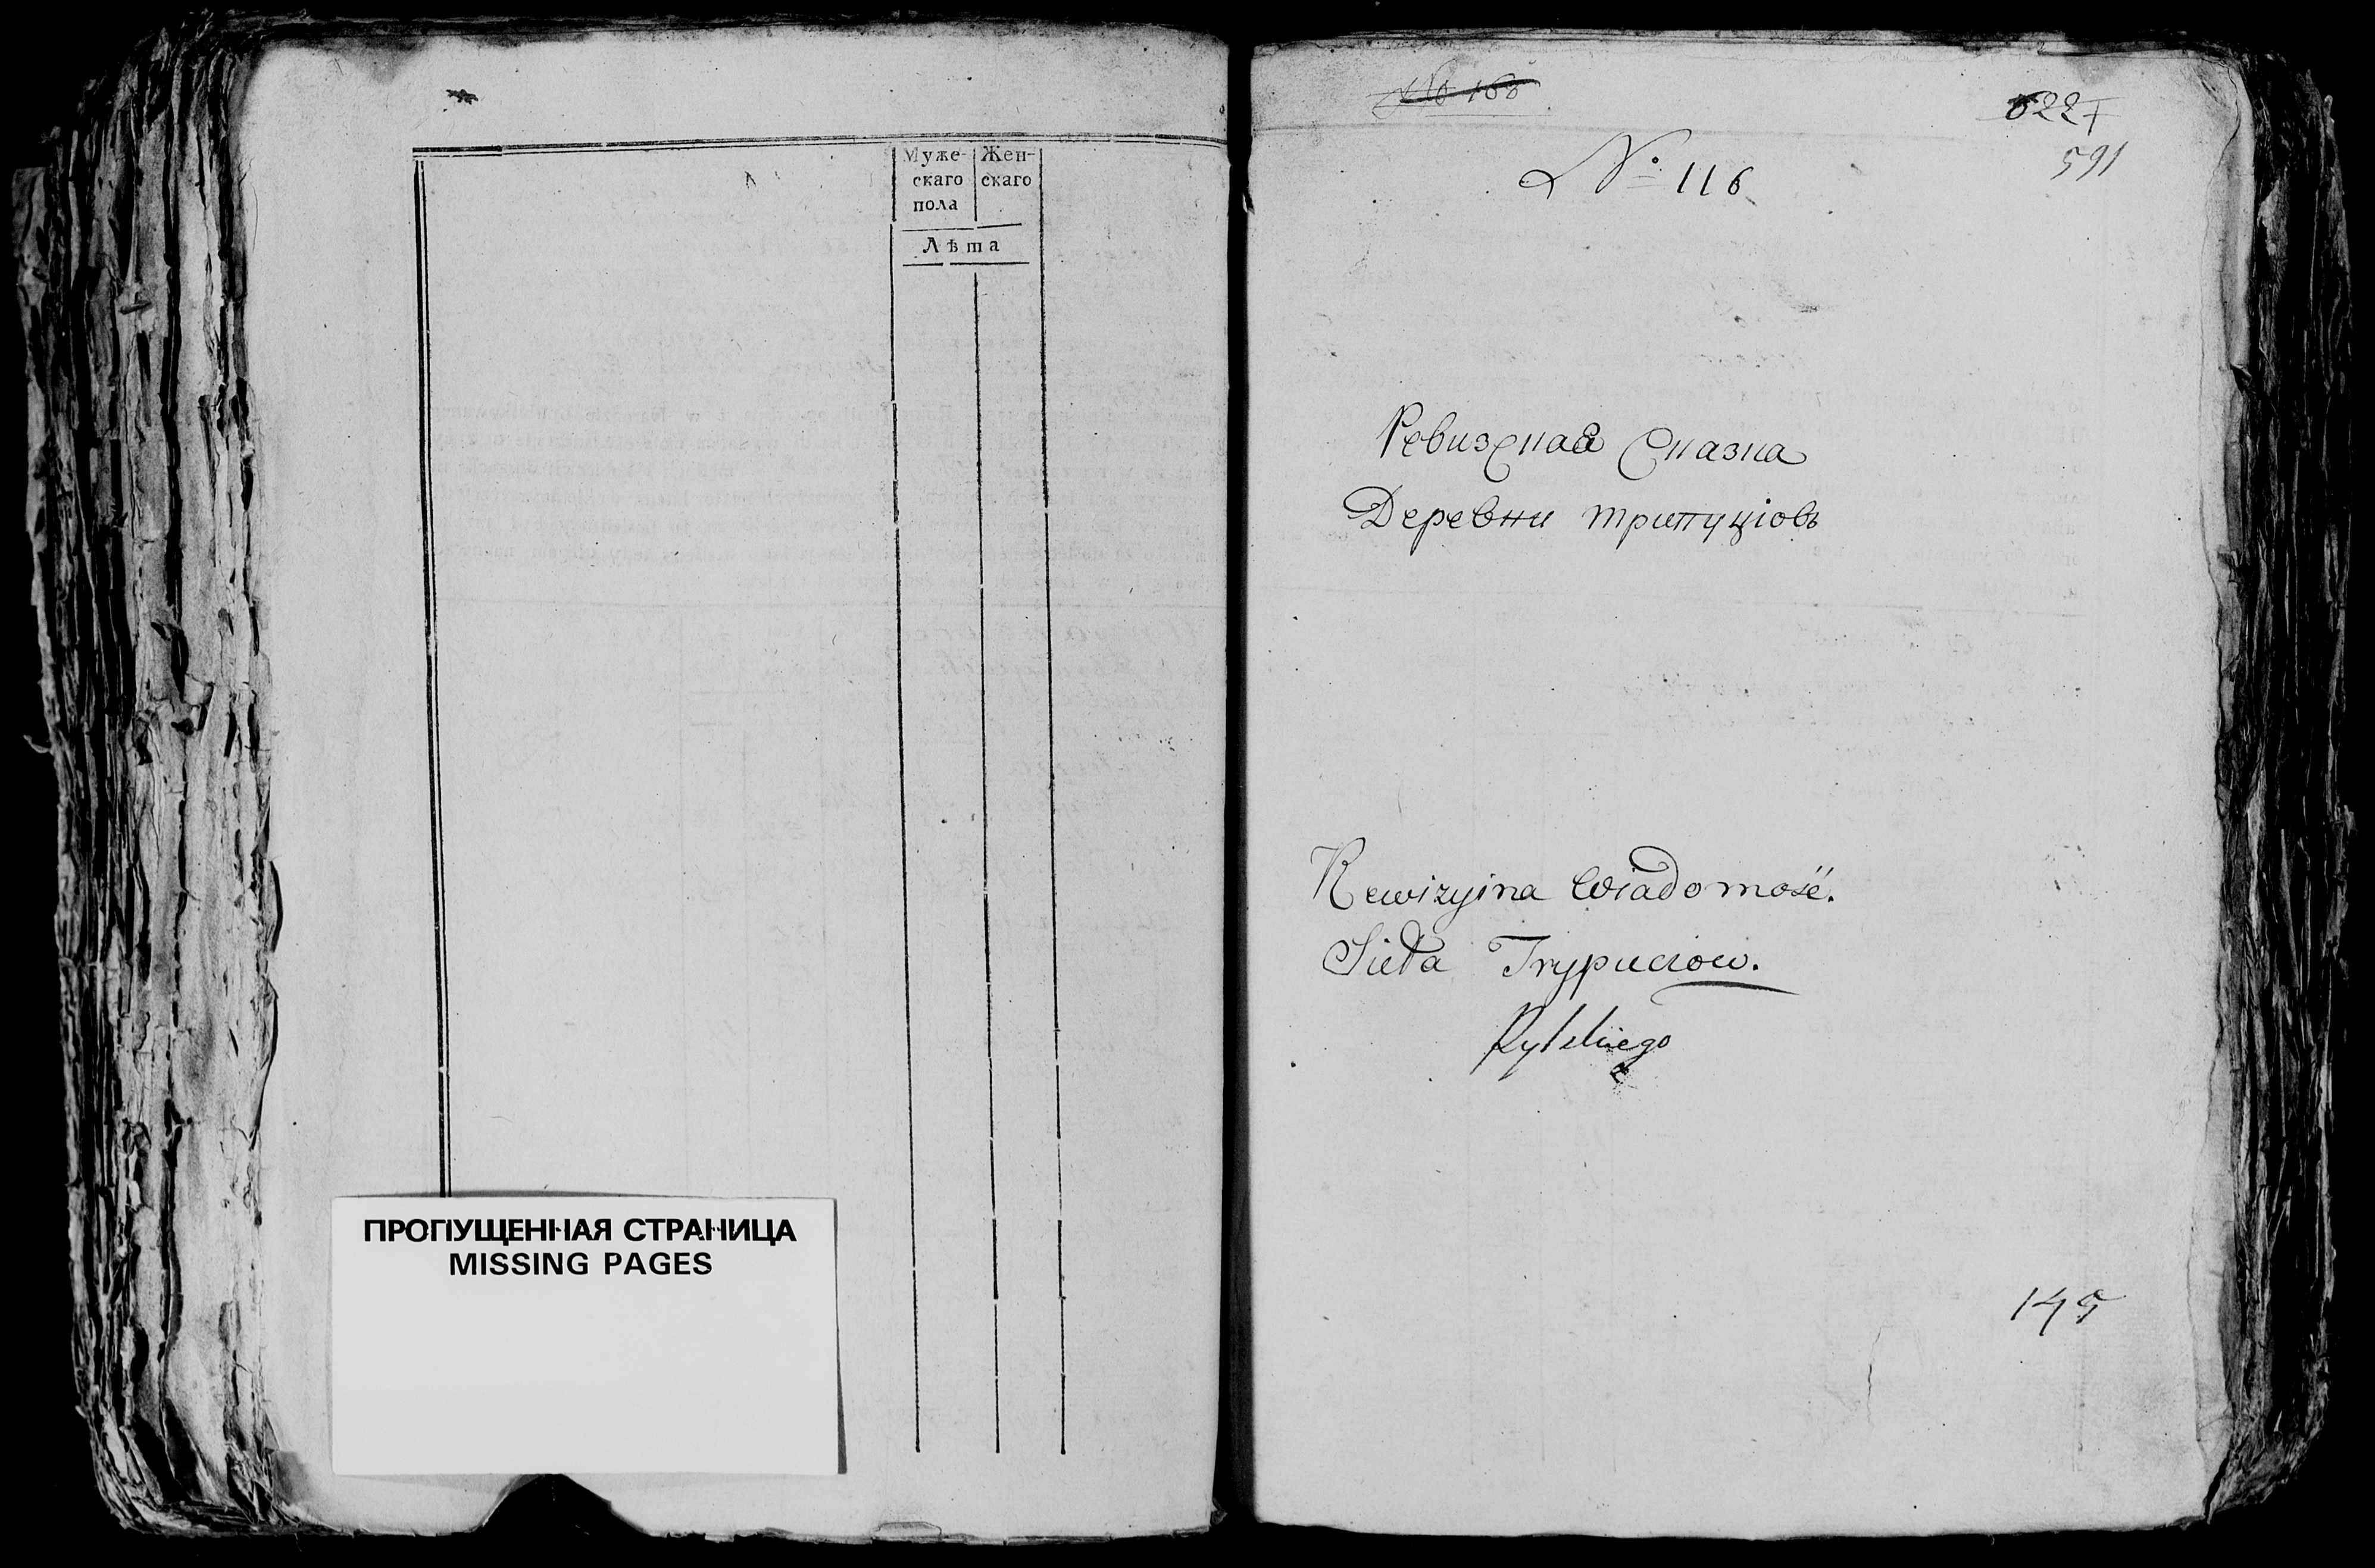 Муже- Жен-
скаго скаго
пола
Лѣта
ПРОПУЩЕННАЯ СТРАНИЦА
MISSING PAGES
№ 116
591
Ревизская Сказка
Деревни Трипуціовъ
Rewizyina Wiadomość.
Sieła Trypuciow.
Rylskiego
145